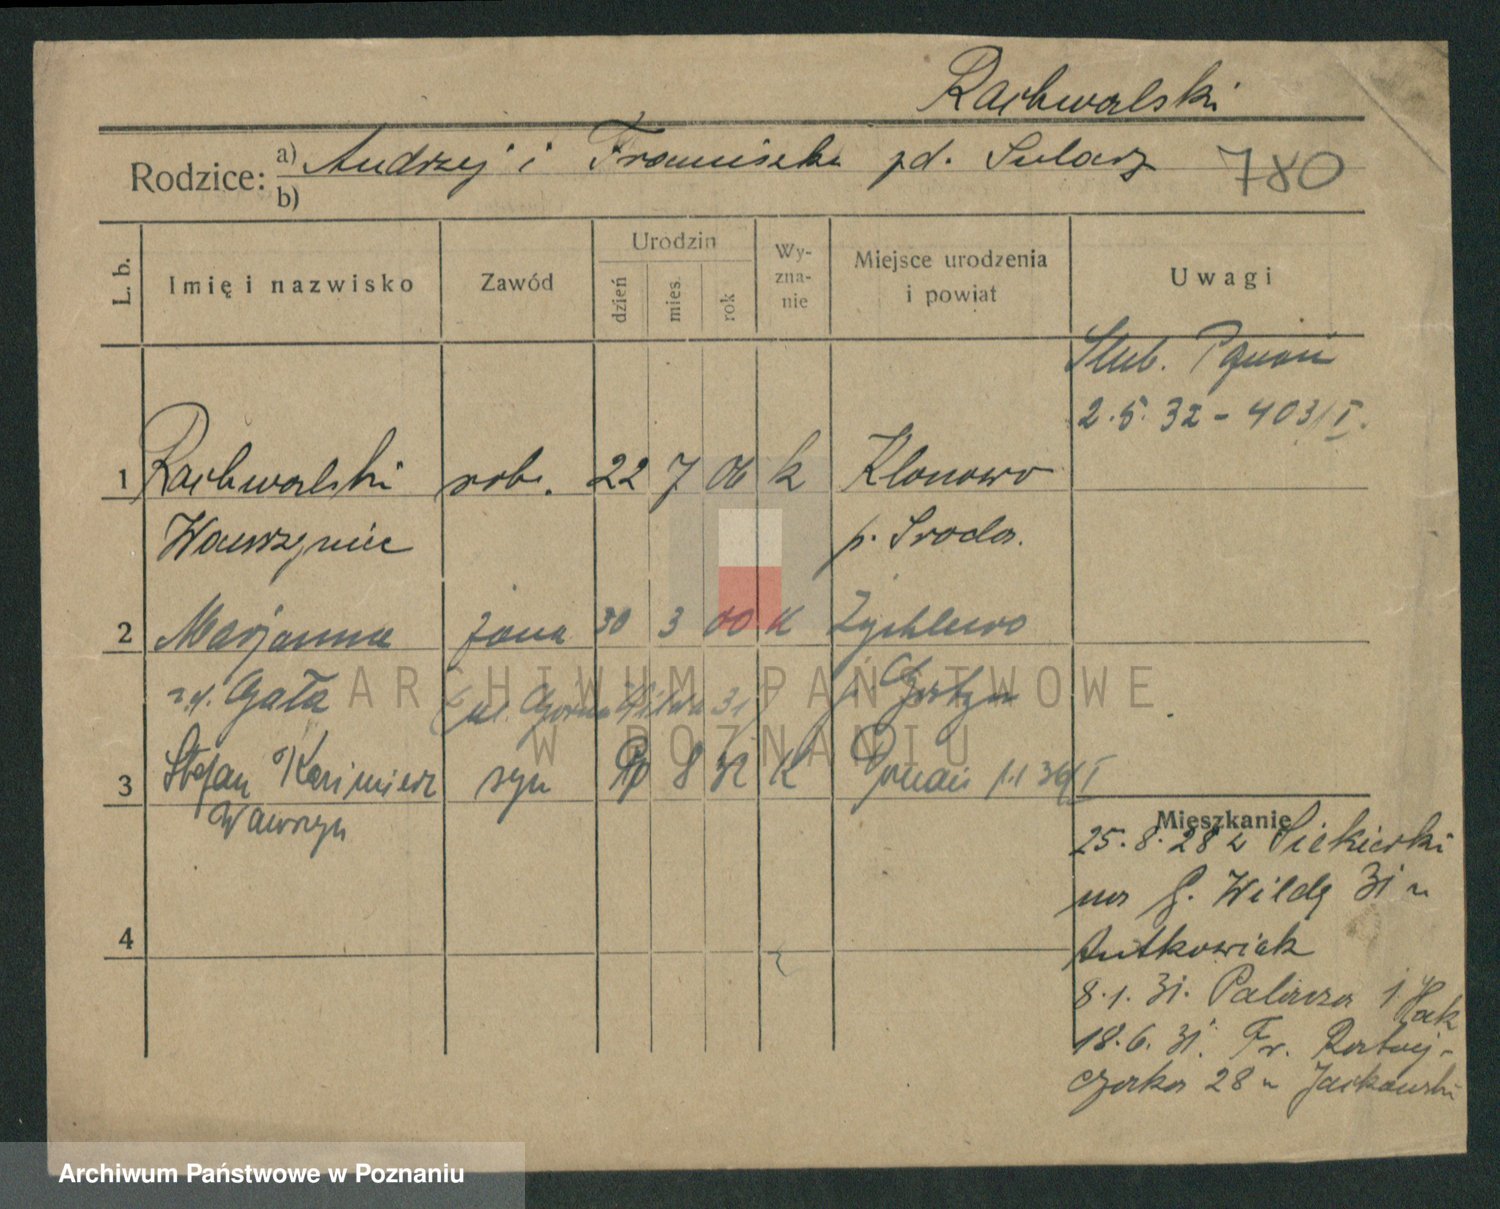 Rachwalski
Rodzice: a) Andrzej i Franciszka zd. Sularz 780
b)
L. b. Imię i nazwisko Zawód Urodzin dzień mies. rok Wy-zna-nie Miejsce urodzenia i powiat Uwagi
Ślub. Poznań
2.5.32 - 403/I.
1 Rachwalski rob. 22 7 06 k Klonowo
Wawrzyniec p. Środa.
2 Marjanna żona 30 3 00 K Żychlewo
zd. Gała (ul. Górna Wilda 31) p. Gostyń
3 Stefan Kazimierz syn 8 32 K Poznań
Wawrzyn
4
Mieszkanie
25.8.28 z Siekierki
na G. Wildę 31 u
Antkowiak
8.1.31. Palacza 1
18.6.31. Fr. Rataj-
czaka 28 u Jackowski
ARCHIWUM PAŃSTWOWE
W POZNANIU
Archiwum Państwowe w Poznaniu